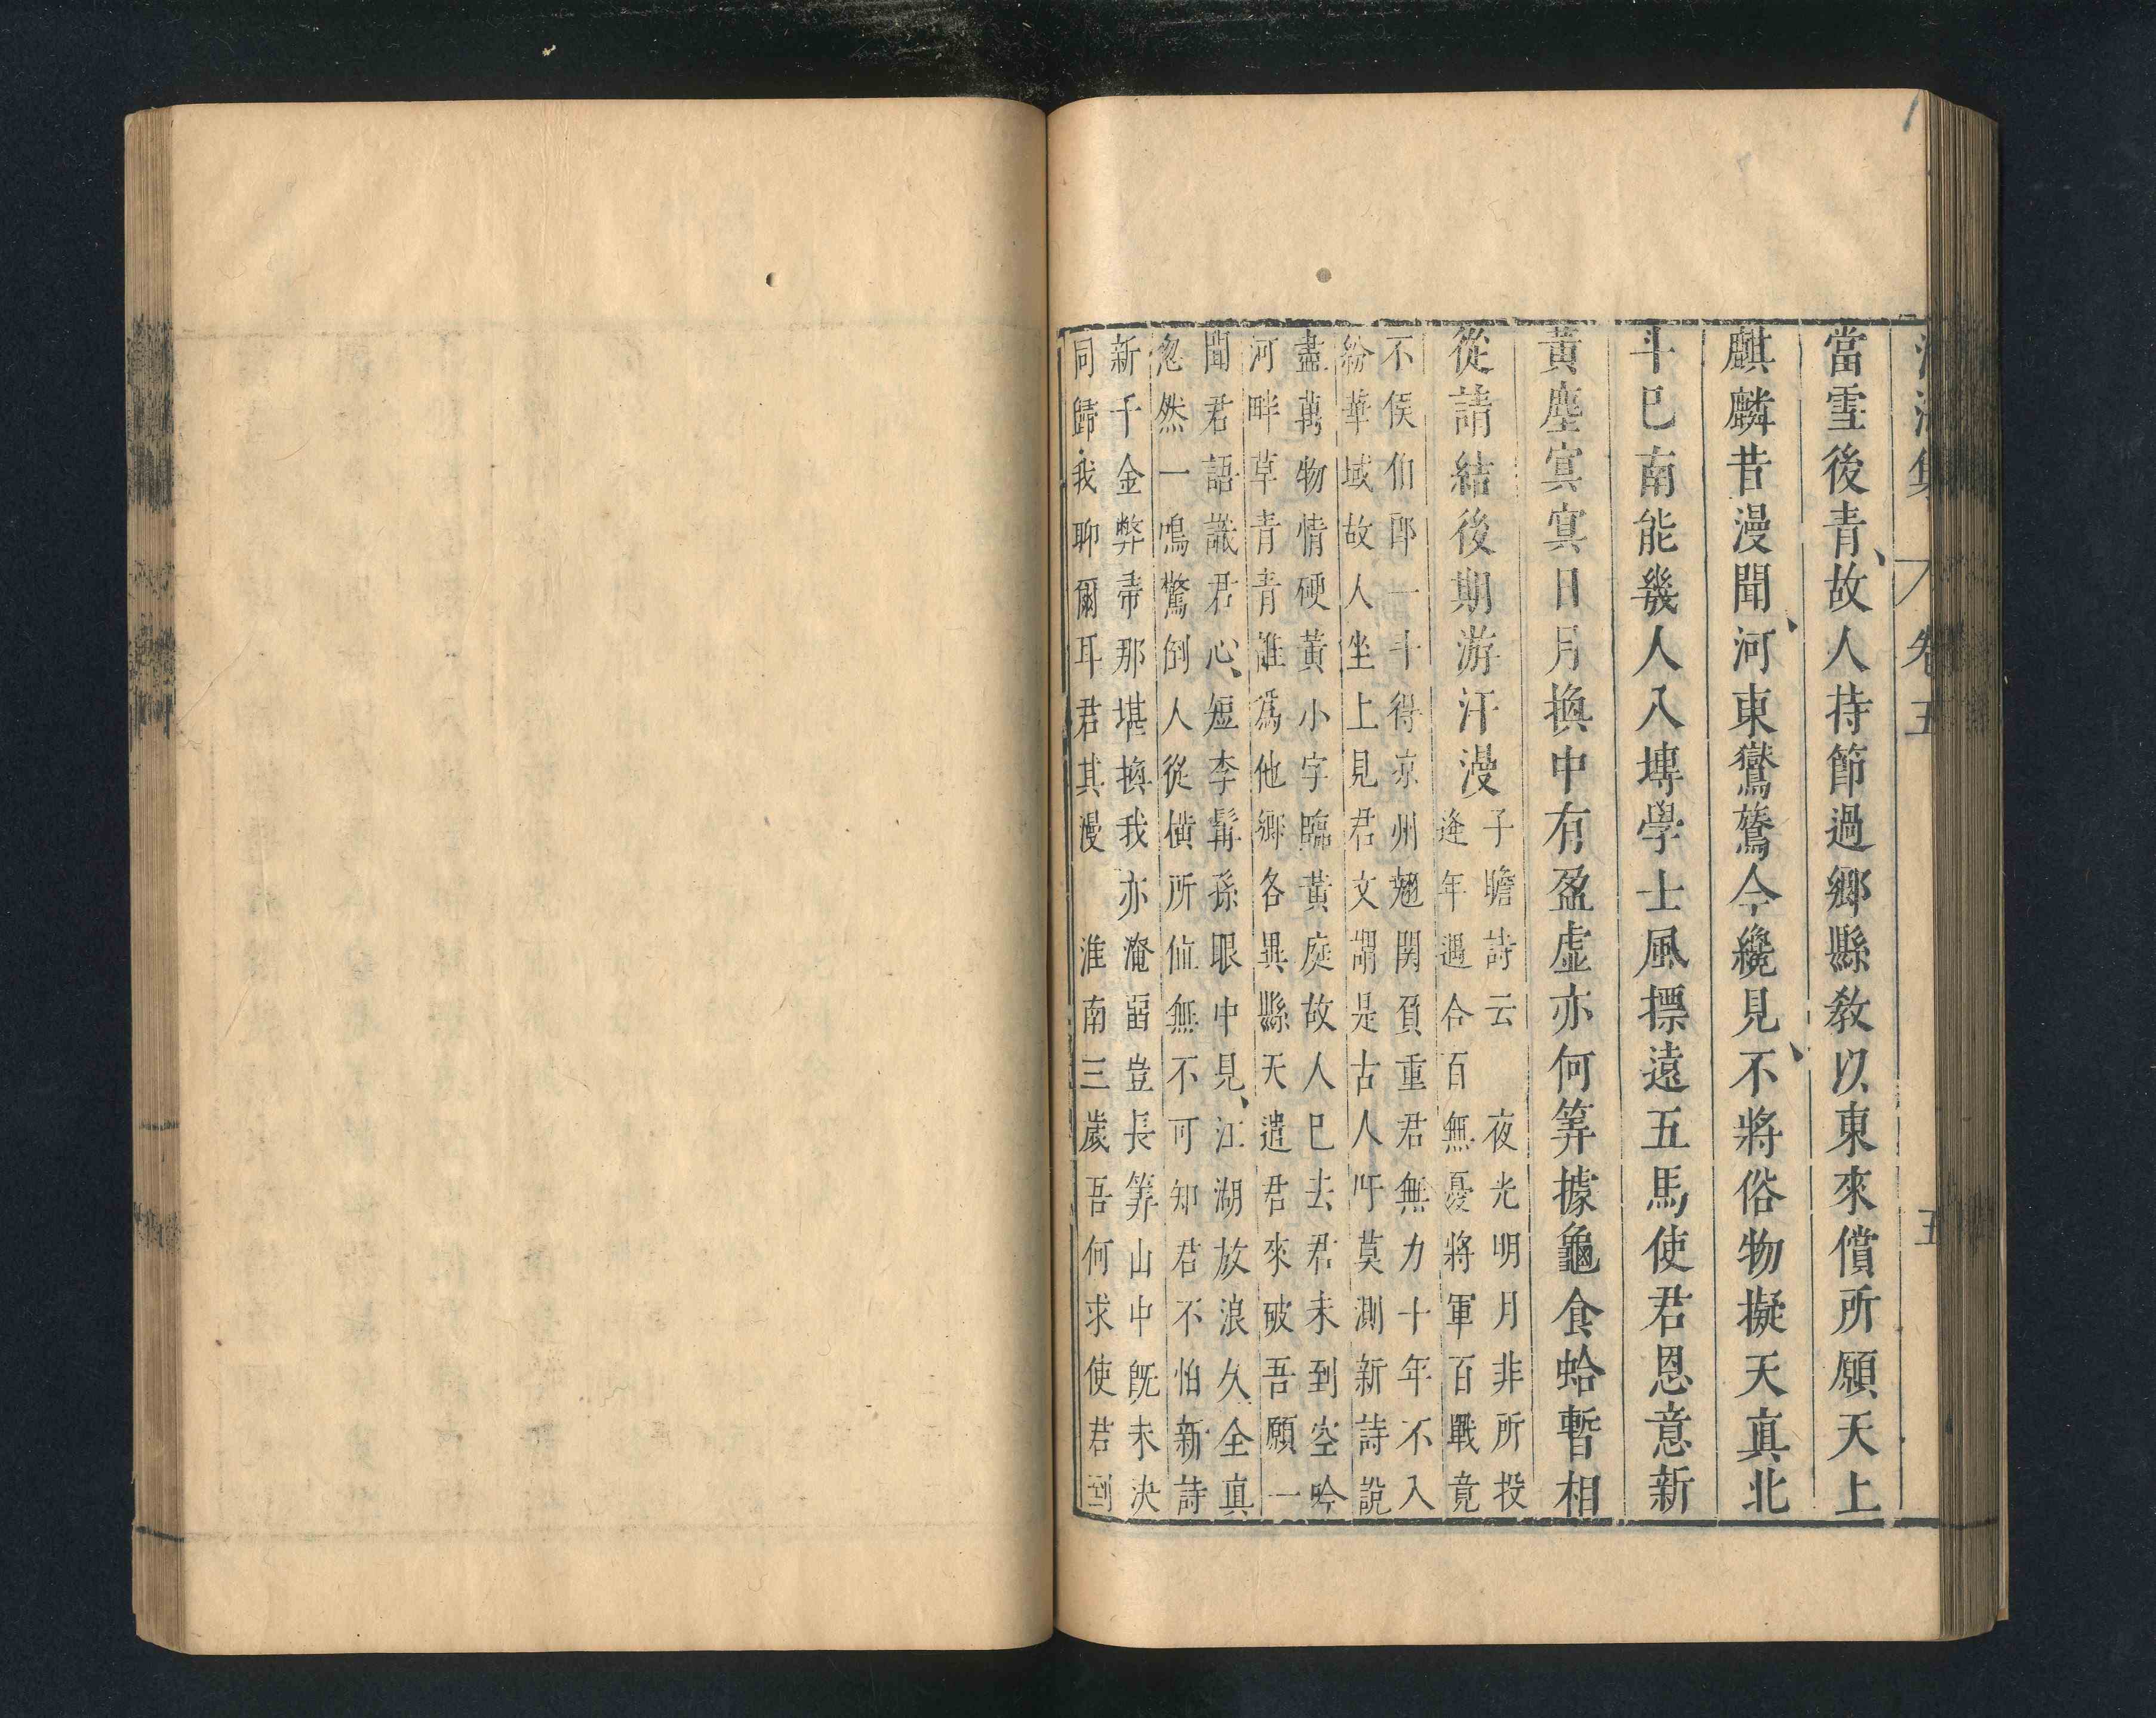 淮海集 卷五 五
當雪後青故人持節過鄉縣教以東來償所願天上
麒麟昔漫聞河東鸑鷟今纔見不將俗物擬天真北
斗已南能幾人入塼學士風摽遠五馬使君恩意新
黃塵㝠㝠日月換中有盈虛亦何筭據龜食蛤暫相
從請結後期游汗漫
子瞻詩云 夜光明月非所投
逢年遇合百無憂將軍百戰竟
不侯伯郎一斗得凉州翹関負重君無力十年不入
紛華域故人坐上見君文謂是古人吁莫測新詩說
盡萬物情硬黃小字臨黃庭故人已去君未到空吟
河畔草青青誰爲他鄉各異縣天遣君來破吾願一
聞君語識君心短李髯孫眼中見江湖放浪久全真
忽然一鳴驚倒人從橫所值無不可知君不怕新詩
新千金弊帚那堪換我亦淹留豈長筭山中既未決
同歸我聊爾耳君其漫 淮南三歲吾何求使君到